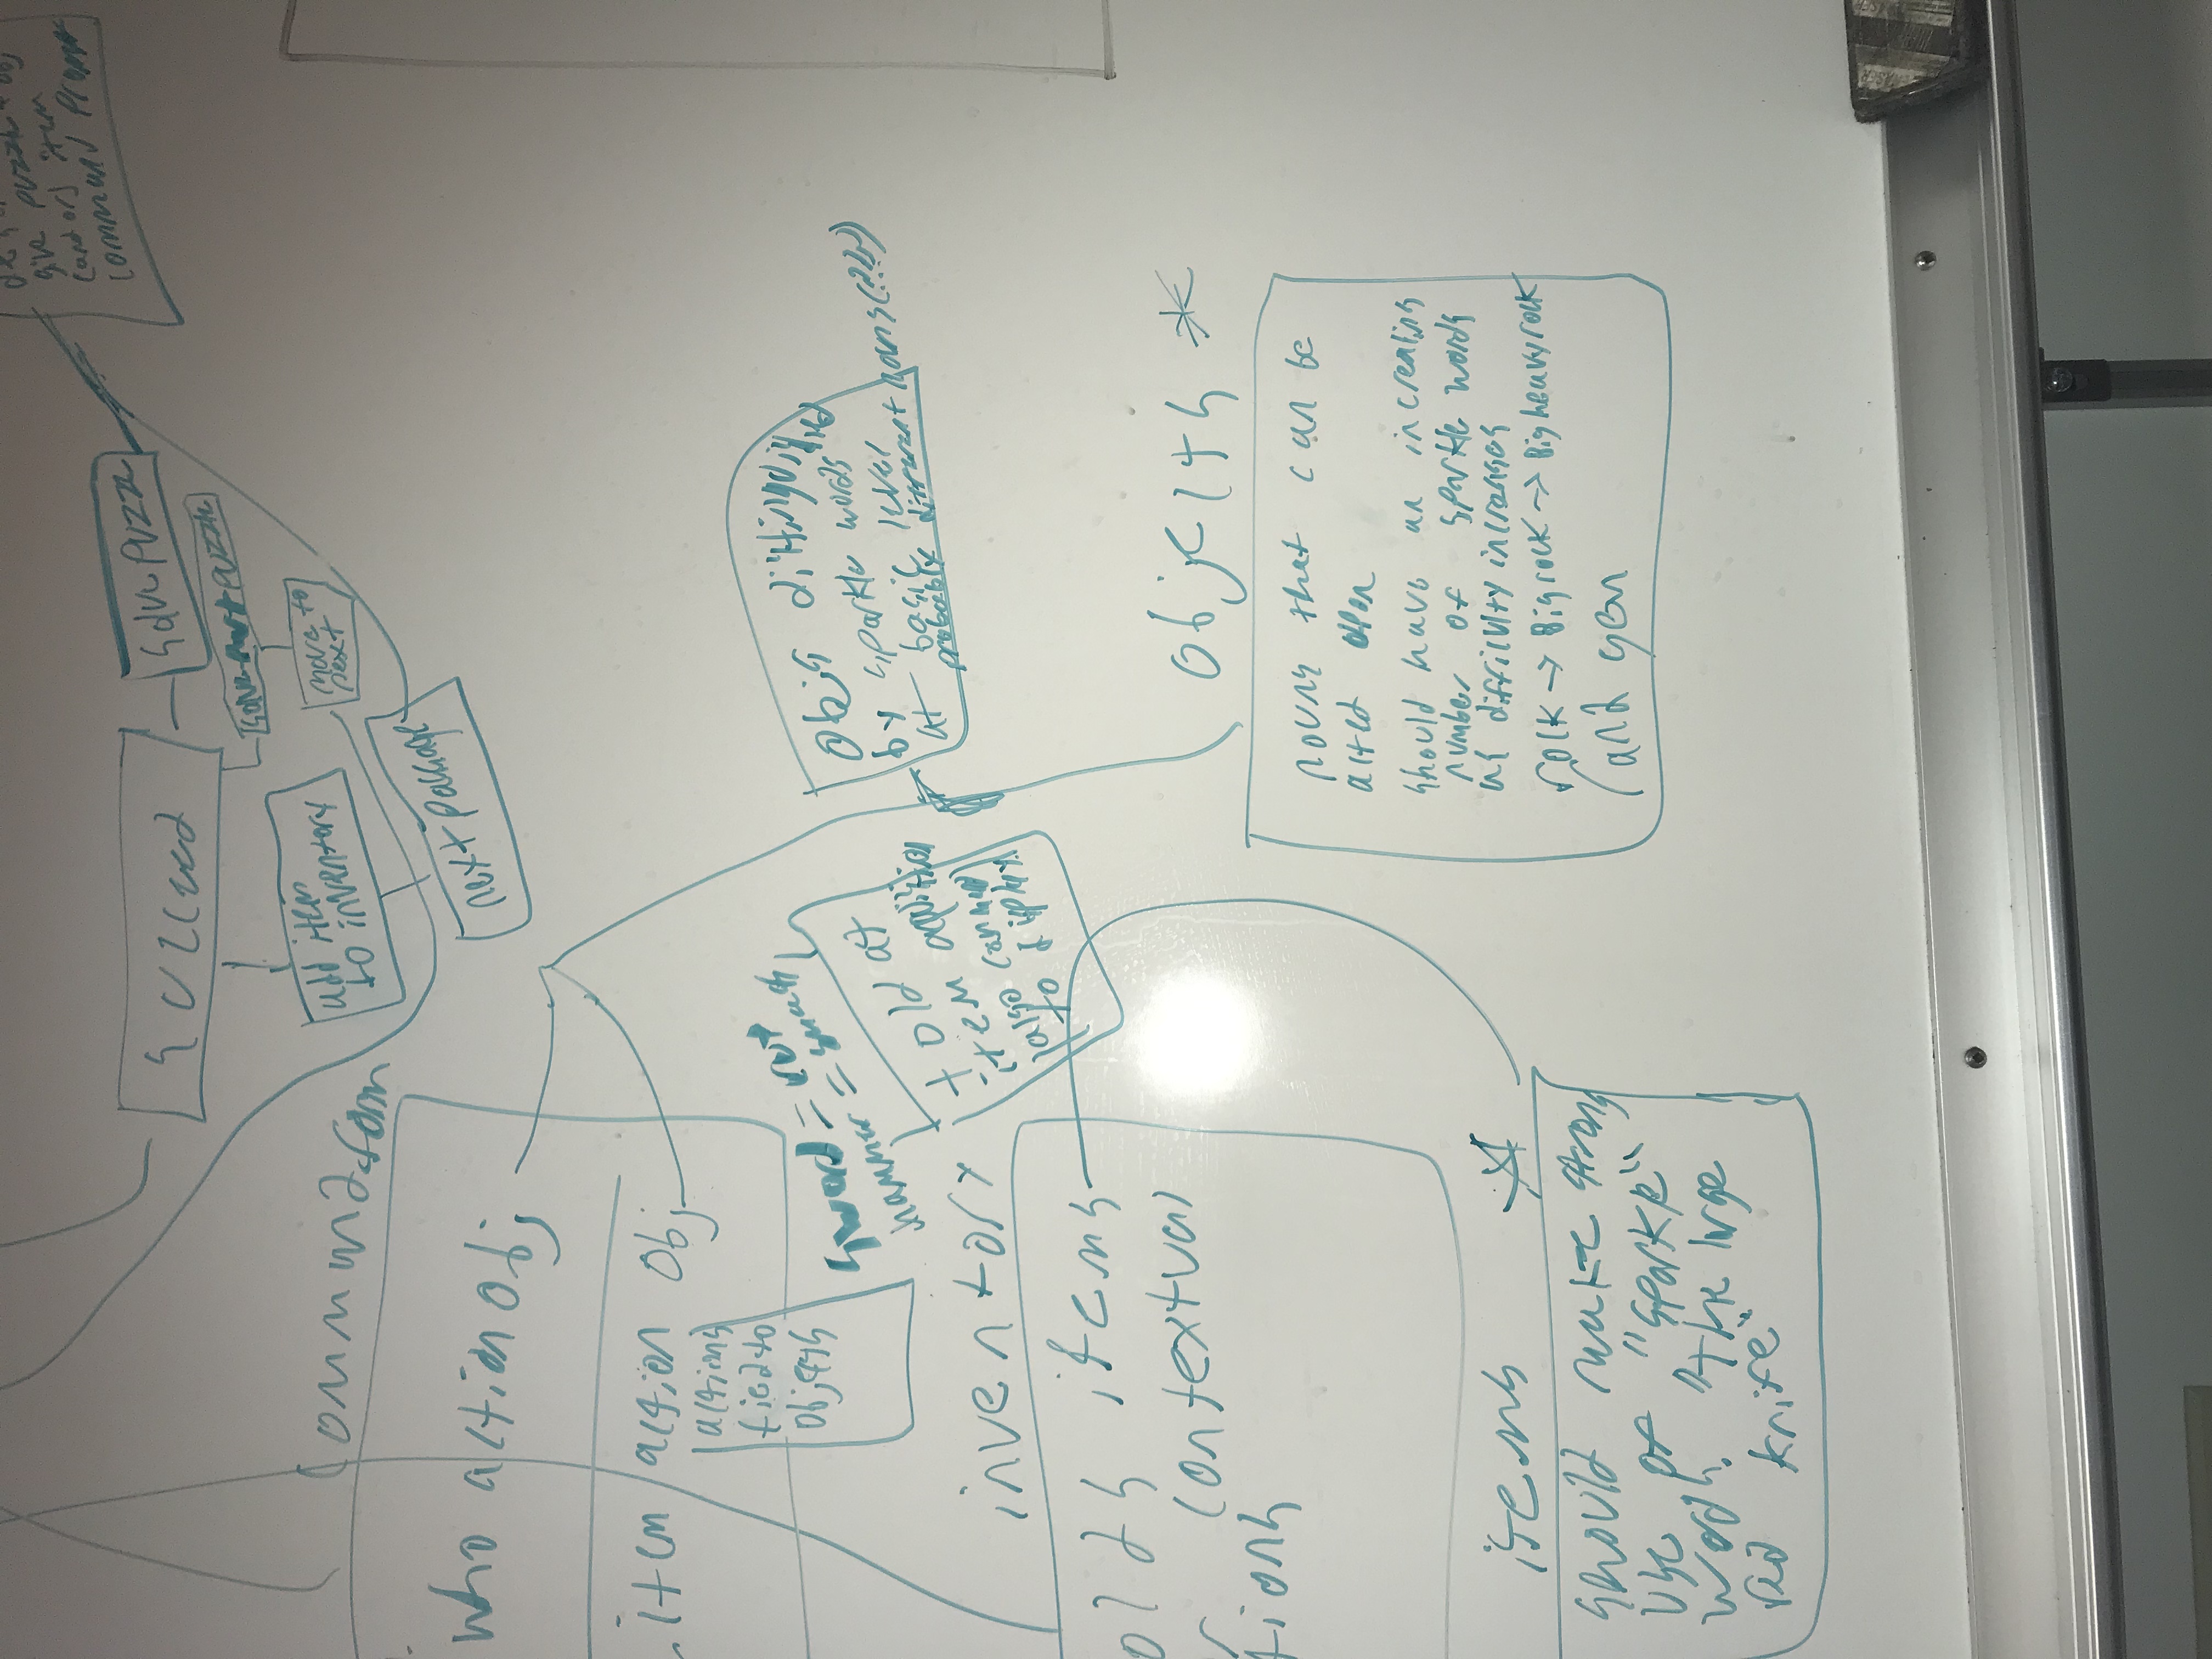 give puzzle + obj
(and or) item
command prompt
succeed
solve puzzle
solve part puzzle
add item
to inventory
move to
next
next package
command form
who action obj
item action obj
actions
tied to
objects
sword = cut
hammer = smash
told at
item aquisition
(also command
to display)
objs distinguished
by sparkle words
at basic level
probably different nouns (???)
inventory
olds items
contextual
tions
objects *
nouns that can be
acted upon
should have an increasing
number of sparkle words
as difficulty increases
rock → Big rock → Big heavy rock
items *
should make strong
use of "sparkle"
words. "the large
red knife"